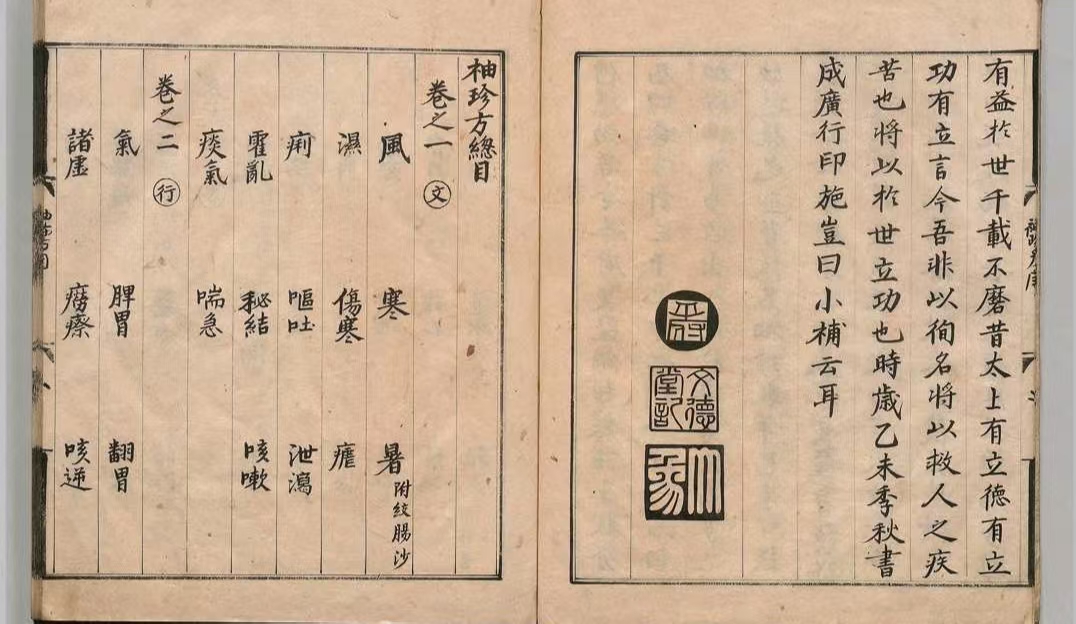 有益於世千載不磨昔太上有立德有立
功有立言今吾非以徇名將以救人之疾
苦也將以於世立功也時歲乙未季秋書
成廣行印施豈曰小補云耳
文德堂記
袖珍方總目
卷之一 文
風 寒 暑 附絞腸沙
濕 傷寒 瘧
痢 嘔吐 泄瀉
霍亂 秘結 咳嗽
痰氣 喘急
卷之二 行
氣 脾胃 翻胃
諸虛 癆瘵 咳逆